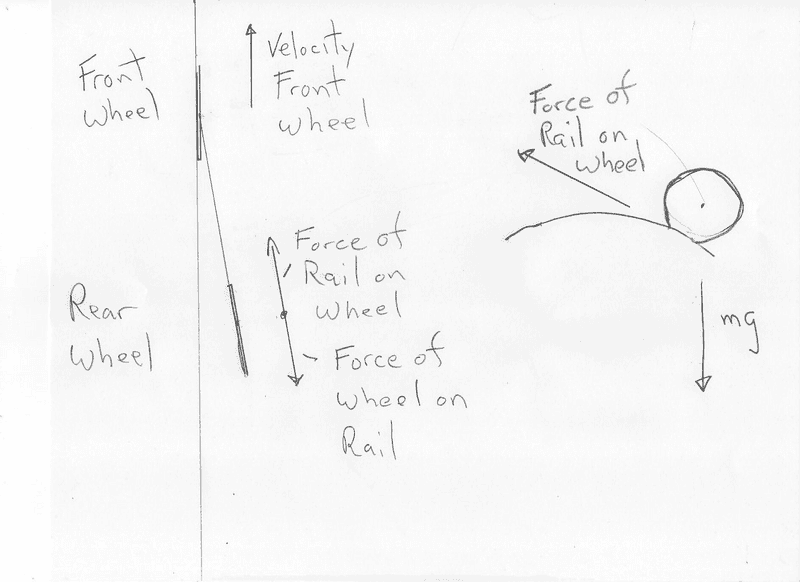 Front
wheel
Velocity
Front
wheel
Force of
Rail on
wheel
Rear
wheel
Force of
Rail on
wheel
Force of
wheel on
Rail
mg